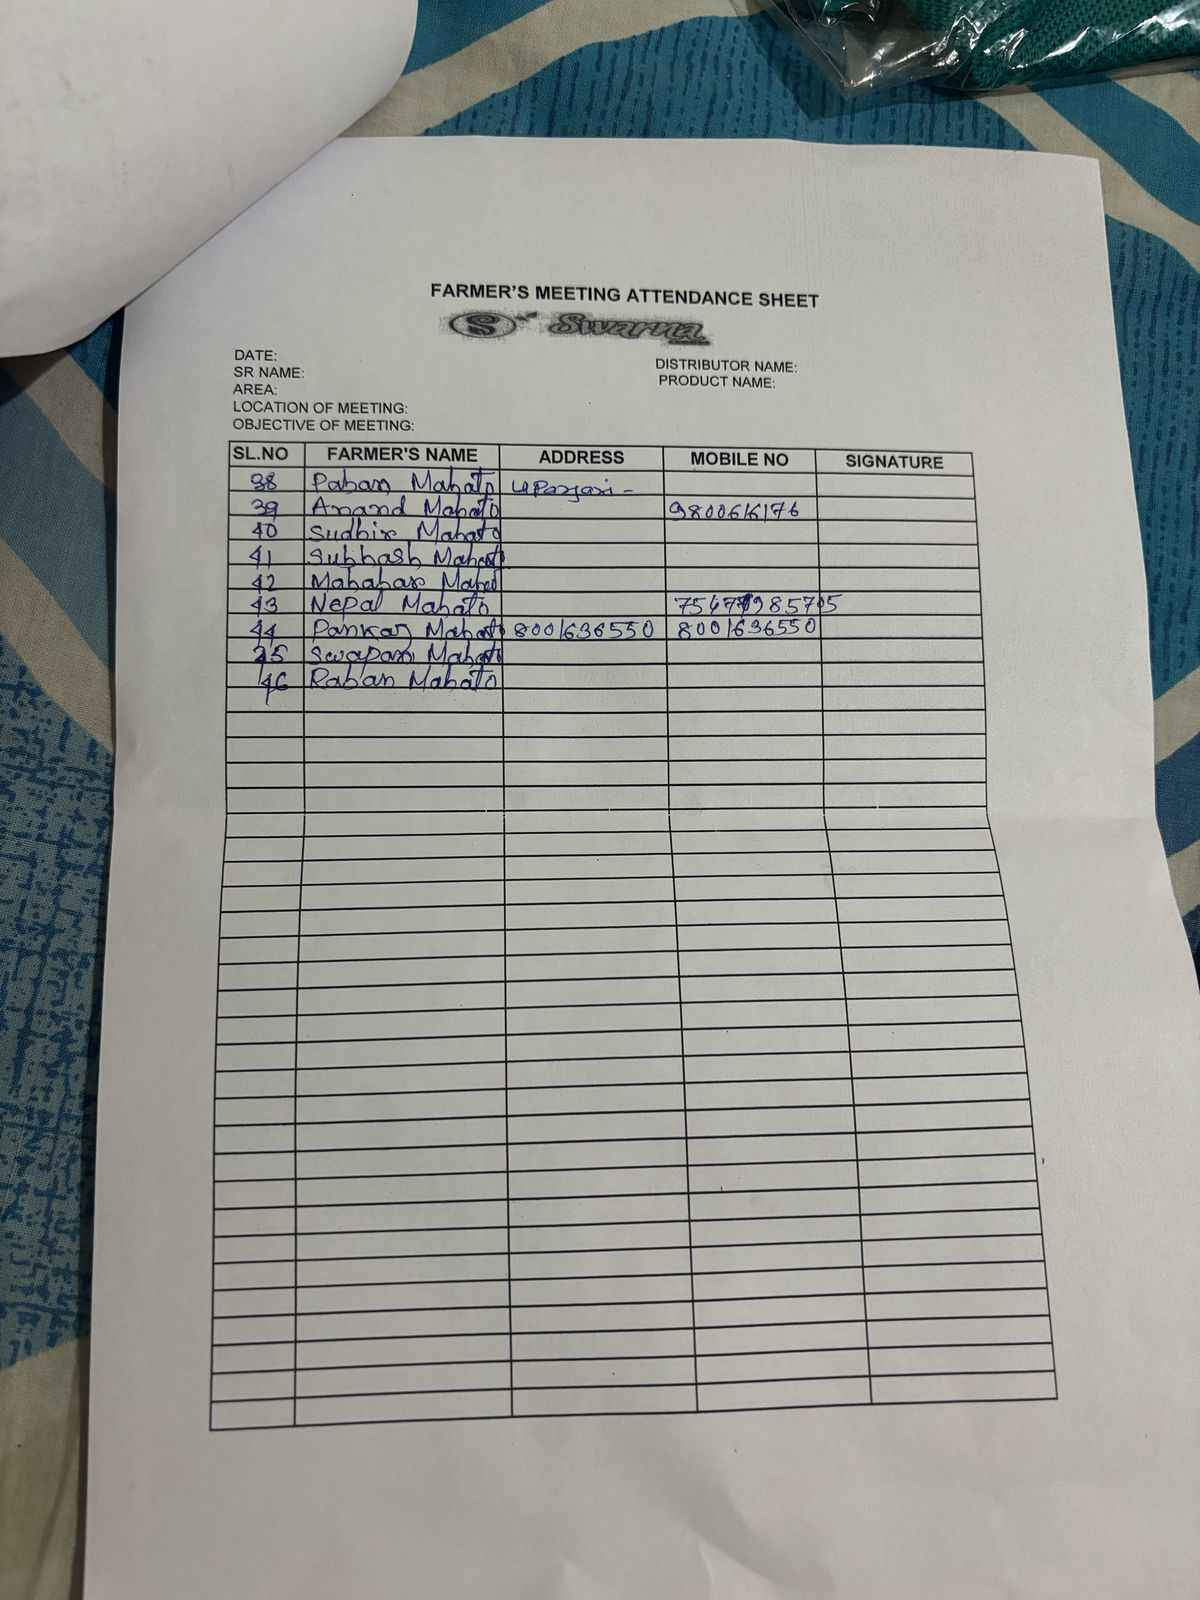 FARMER'S MEETING ATTENDANCE SHEET
S Swarna
DATE:
SR NAME:
AREA:
LOCATION OF MEETING:
OBJECTIVE OF MEETING:
DISTRIBUTOR NAME:
PRODUCT NAME:
SL.NO FARMER'S NAME ADDRESS MOBILE NO SIGNATURE
38 Paban Mahato
39 Anand Mahato 9800616176
40 Sudhir Mahato
41 Subhash Mahato
42 Mahabar Mahato
43 Nepal Mahato
44 Pankaj Mahato 8001636550 8001636550
Swapan Mahato
46 Raban Mahato